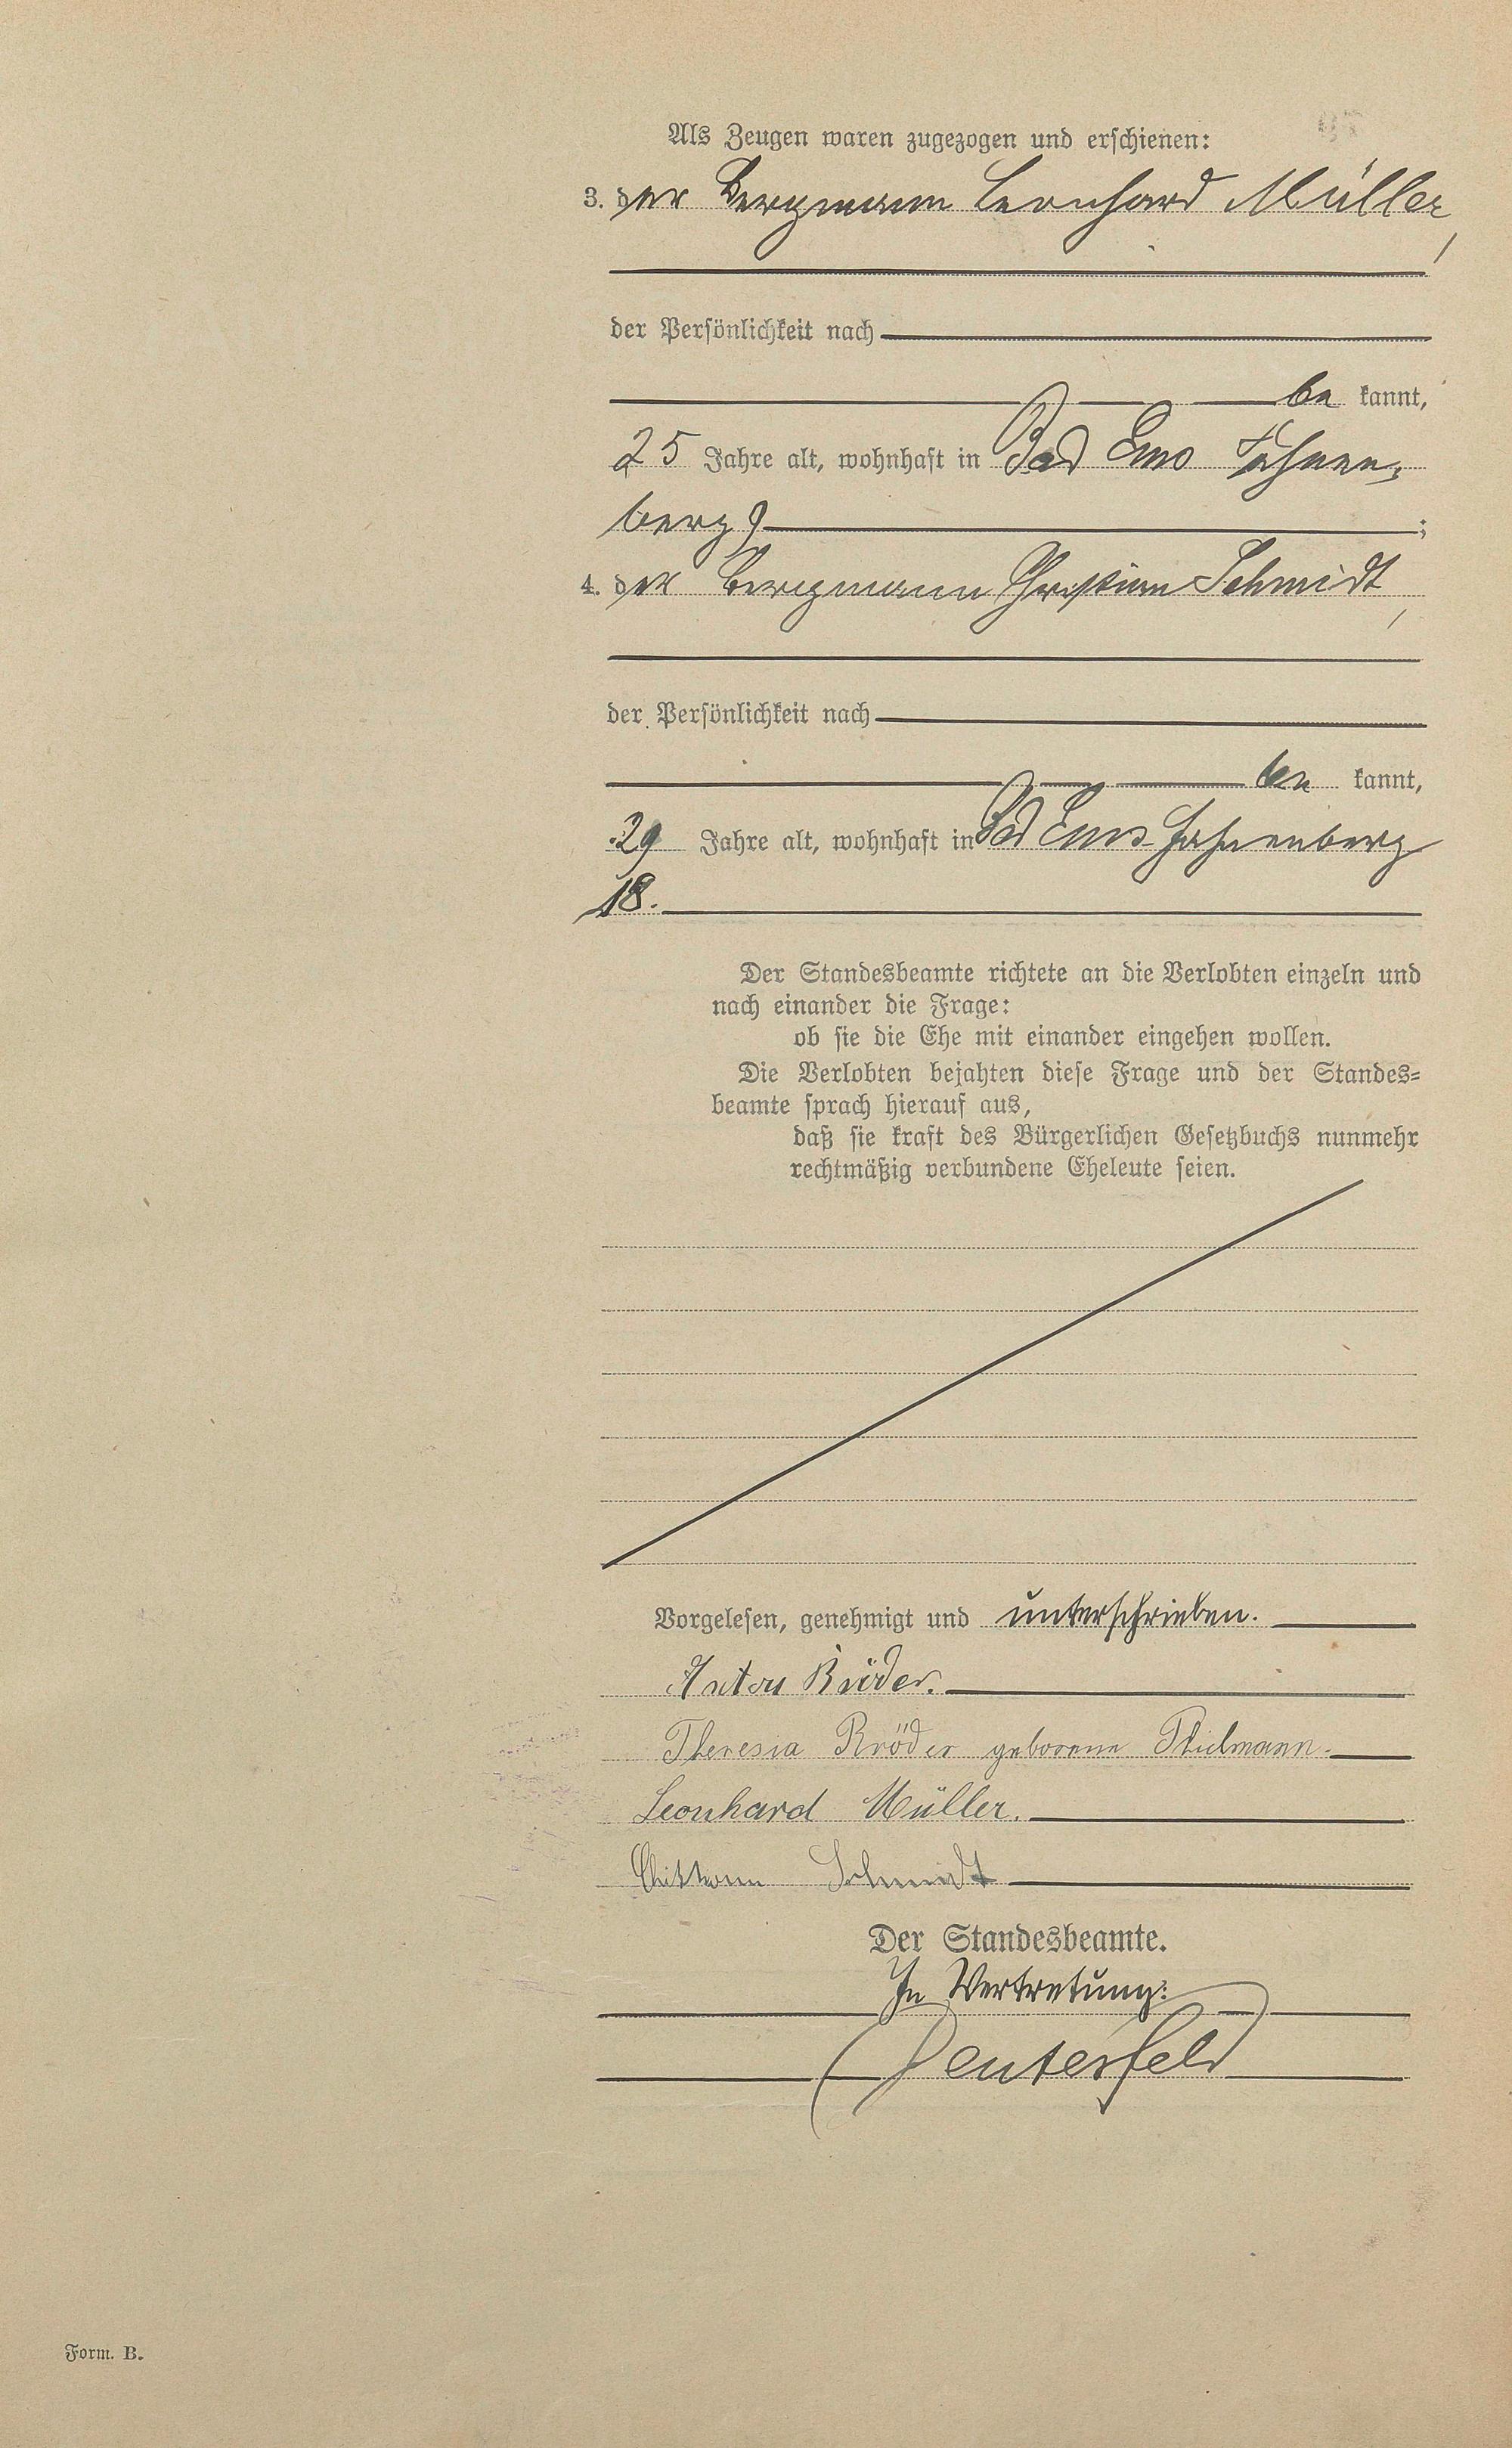 Als Zeugen waren zugezogen und erschienen:
3. der Bergmann Leonhard Müller,
der Persönlichkeit nach
be kannt,
25 Jahre alt, wohnhaft in Bad Ems Fahnen-
berg 9;
4. der Bergmann Christian Schmidt,
der Persönlichkeit nach
be kannt,
29 Jahre alt, wohnhaft in Bad Ems Fahnenberg
18.
Der Standesbeamte richtete an die Verlobten einzeln und
nach einander die Frage:
ob sie die Ehe mit einander eingehen wollen.
Die Verlobten bejahten diese Frage und der Standes-
beamte sprach hierauf aus,
daß sie kraft des Bürgerlichen Gesetzbuchs nunmehr
rechtmäßig verbundene Eheleute seien.
Vorgelesen, genehmigt und unterschrieben.
Anton Bröder.
Theresia Bröder geborene Thielmann.
Leonhard Müller.
Christian Schmidt
Der Standesbeamte.
In Vertretung:
Form. B.